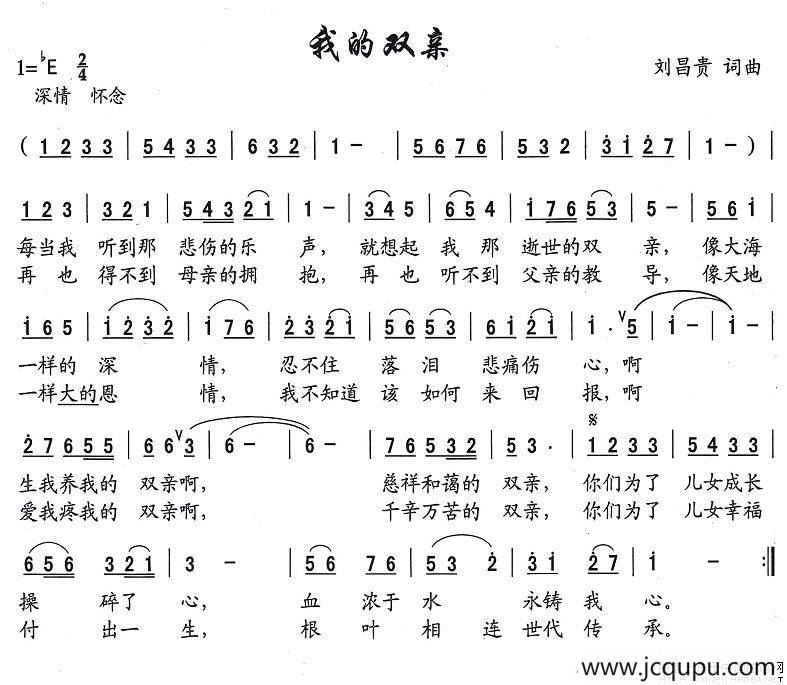 我的双亲
1=♭E 2/4
刘昌贵 词曲
深情 怀念
( 1 2 3 3 | 5 4 3 3 | 6 3 2 | 1 – | 5 6 7 6 | 5 3 2 | 3̇ 1̇ 2̇ 7 | 1 – ) |
1 2 3 | 3 2 1 | 5 4 3 2 1 | 1 – | 3 4 5 | 6 5 4 | 1̇ 7 6 5 3 | 5 – | 5 6 1̇ |
每当我 听到那 悲伤的乐 声, 就想起 我 那 逝世的双 亲, 像大海
再也 得不到 母亲的拥 抱, 再也 听不到 父亲的教 导, 像天地
1̇ 6 5 | 1̇ 2̇ 3̇ 2̇ | 1̇ 7 6 | 2̇ 3̇ 2̇ 1̇ | 5 6 5 3 | 6 1̇ 2̇ 1̇ | 1̇ . ∨ 5 | 1̇ – | 1̇ – |
一样的 深 情, 忍不住 落泪 悲痛伤 心, 啊
一样大的恩 情, 我不知道 该 如何 来 回 报, 啊
2̇ 7 6 5 5 | 6 6 ∨ 3̇ | 6 – | 6 – | 7 6 5 3 2 | 5 3 . | 1 2 3 3 | 5 4 3 3 |
生我养我的 双亲啊, 慈祥和蔼的 双亲, 你们为了 儿女成长
爱我疼我的 双亲啊, 千辛万苦的 双亲, 你们为了 儿女幸福
6 5 6 | 3 2 1 | 3 – | 5 6 | 7 6 | 5 3 2̇ | 3̇ 1̇ | 2̇ 7 | 1̇ – :||
操 碎了 心, 血 浓于 水 永铸 我 心。
付 出一 生, 根 叶 相 连 世代 传 承。
www.jcqupu.com